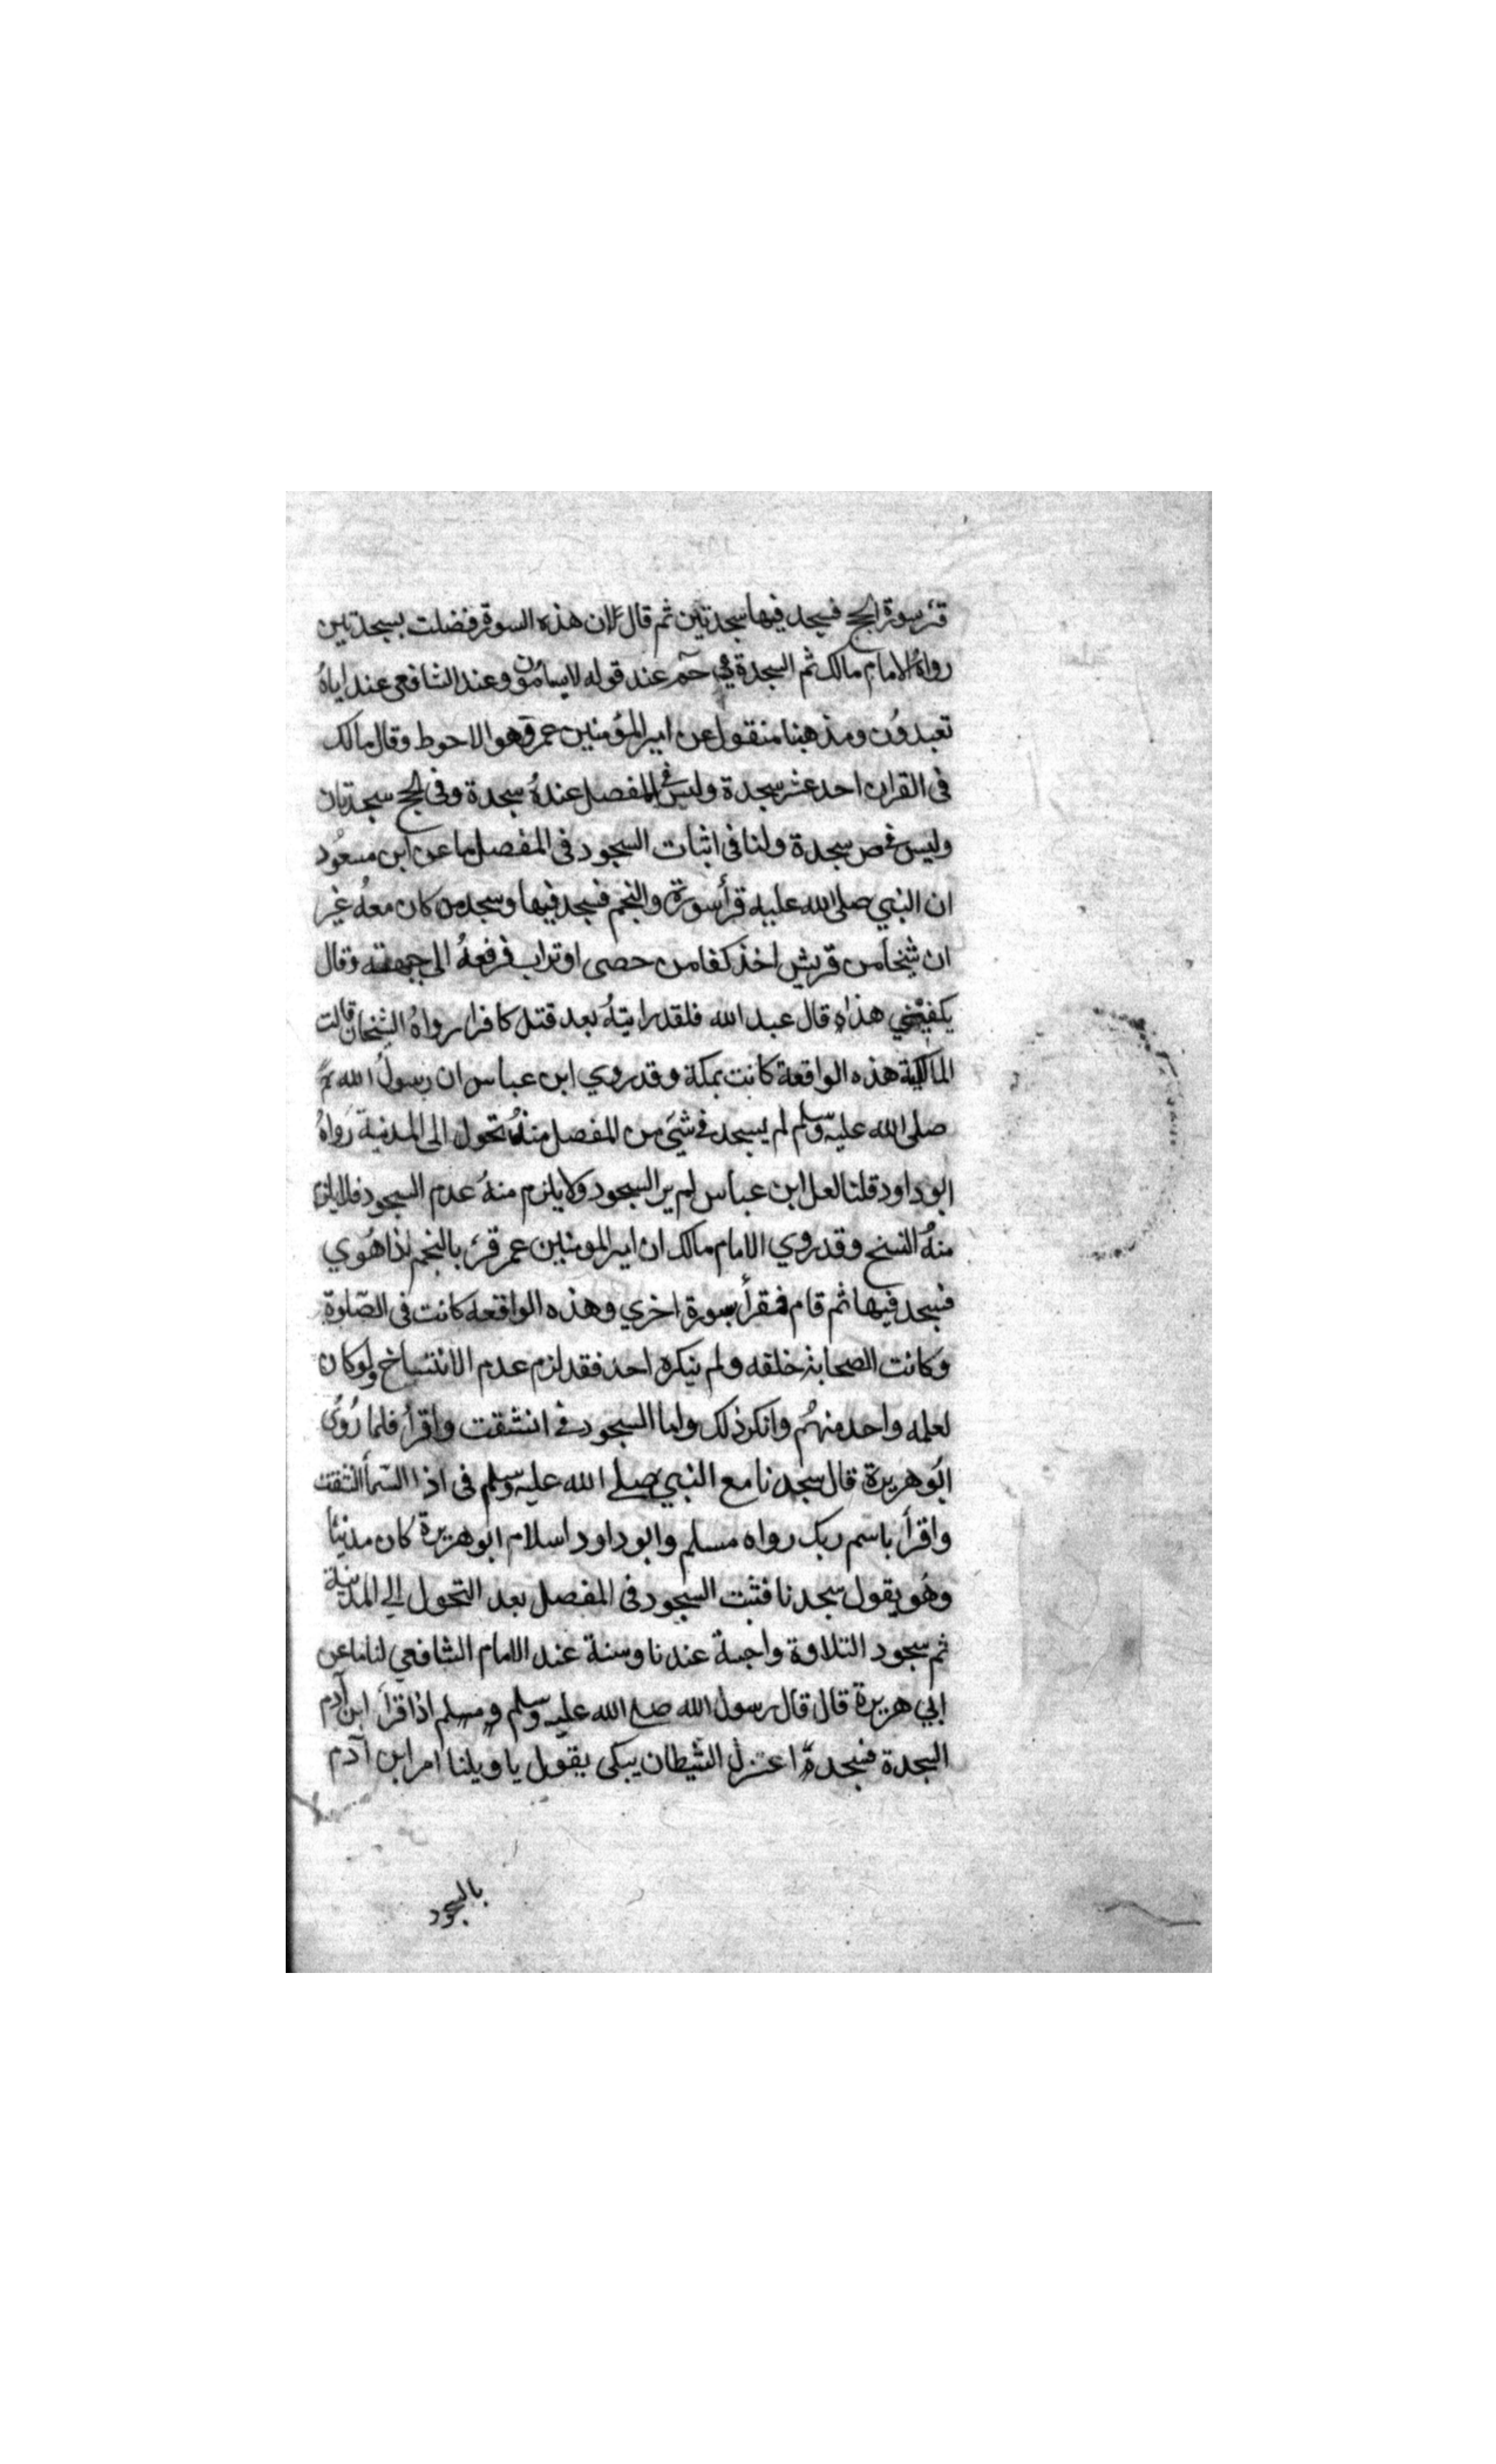 قرئ سورة الحج فسجد فيها سجدتين ثم قال لان هذه السورة فضلت بسجدتين
رواه الامام مالك ثم السجدة في حم عند قوله لايسامون وعند الشافعي عند اياه
تعبدون ومذهبنا منقول عن امير المؤمنين عمر وهو الاحوط وقال مالك
فى القران احد عشر سجدة وليس في المفصل عنده سجدة وفى الحج سجدتان
وليس في ص سجدة ولنا فى اثبات السجود فى المفصل ما عن ابن مسعود
ان النبي صلى الله عليه قرأ سورة والنجم فسجد فيها وسجد من كان معه غير
ان شيخا من قريش اخذ كفا من حصى او تراب فرفعه الى جبهته وقال
يكفيني هذا قال عبد الله فلقد رايته بعد قتل كافرا رواه الشيخان قالت
المالكية هذه الواقعة كانت بمكة وقد روي ابن عباس ان رسول الله
صلى الله عليه وسلم لم يسجد في شيء من المفصل منذ تحول الى المدينة رواه
ابو داود قلنا لعل ابن عباس لم ير السجود ولا يلزم منه عدم السجود فلا يلزم
منه النسخ وقد روي الامام مالك ان امير المومنين عمر قرئ بالنجم اذا هوي
فسجد فيها ثم قام فقرأ بسورة اخري وهذه الواقعة كانت فى الصلوة
وكانت الصحابة خلقه ولم ينكره احد فقد لزم عدم الانتساخ ولو كان
لعلمه واحد منهم وانكر ذلك واما السجود في انشقت واقرأ فلما روى
ابو هريرة قال سجدنا مع النبي صلى الله عليه وسلم فى اذا السمأ انشقت
واقرأ باسم ربك رواه مسلم وابو داود اسلام ابو هريرة كان مدنيا
وهو يقول سجدنا فثبت السجود فى المفصل بعد التحول الي المدينة
ثم سجود التلاوة واجبة عندنا وسنة عند الامام الشافعي لنا ما عن
ابي هريرة قال قال رسول الله صلى الله عليه وسلم ومسلم اذا قرأ ابن آدم
السجدة فسجدة اعتزل الشيطان يبكى يقول يا ويلنا امر ابن آدم
بالسجود